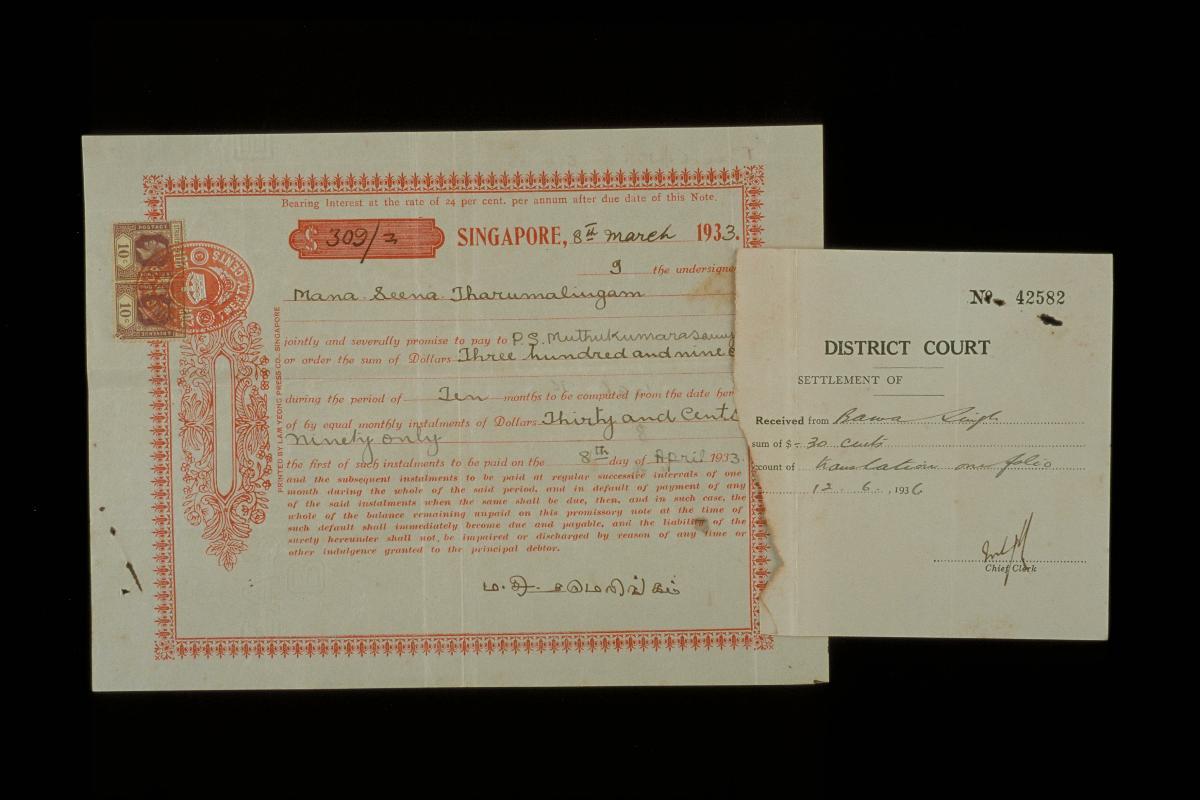 Bearing Interest at the rate of 24 per cent. per annum after due date of this Note.
$ 309/=
SINGAPORE, 8th March 1933.
I the undersigne
Mana Seena Tharumalingam
jointly and severally promise to pay to P.S. Muthukumarasamy
or order the sum of Dollars Three hundred and nine
during the period of Ten months to be computed from the date her
of by equal monthly instalments of Dollars Thirty and Cents
Ninety only
the first of such instalments to be paid on the 8th day of April 1933.
and the subsequent instalments to be paid at regular successive intervals of one
month during the whole of the said period, and in default of payment of any
of the said instalments when the same shall be due, then, and in such case, the
whole of the balance remaining unpaid on this promissory note at the time of
such default shall immediately become due and payable, and the liability of the
surety hereunder shall not be impaired or discharged by reason of any time or
other indulgence granted to the principal debtor.
PRINTED BY LAM YEONG PRESS CO. SINGAPORE
POSTAGE
10 C
10 C
CENTS
No 42582
DISTRICT COURT
SETTLEMENT OF
Received from Bawa Singh
sum of $ - 30 cents
ccount of translation one folio
12. 6. , 1936
Chief Clerk